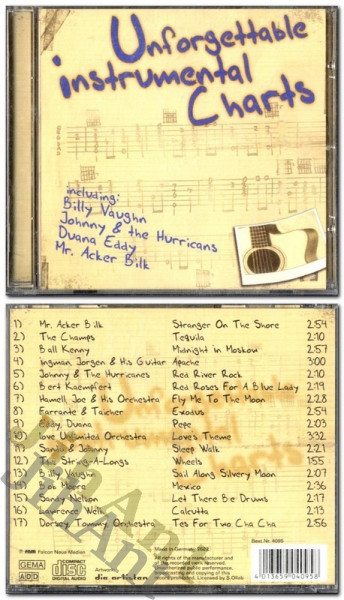 Unforgettable
instrumental
Charts
including:
Billy Vaughn
Johnny & the Hurricans
Duana Eddy
Mr. Acker Bilk
1) Mr. Acker Bilk Stranger On The Shore 2:54
2) The Champs Tequila 2:10
3) Ball Kenny Midnight in Moskow 2:57
4) Ingman, Jorgen & His Guitar Apache 3:00
5) Johnny & The Hurricanes Red River Rock 2:10
6) Bert Kaempfert Red Roses For A Blue Lady 2:19
7) Hamell, Joe & His Orchestra Fly Me To The Moon 2:28
8) Farrante & Taicher Exodus 2:54
9) Eddy, Duana Pepe 2:03
10) Love Unlimited Orchestra Love's Theme 3:32
11) Santo & Johnny Sleep Walk 2:21
12) The String-A-Longs Wheels 1:55
13) Billy Vaughn Sail Along Silvery Moon 2:07
14) Bob Moore Mexico 2:36
15) Sandy Nelson Let There Be Drums 2:17
16) Lawrence Welk Calcutta 2:13
17) Dorsey Tommy Orchestra Tes For Two Cha Cha 2:56
Best.Nr. 4095
Made in Germany
All rights of the manufacturer and
of the recorded work reserved.
Unauthorised public performance,
broadcasting and copying of this
record prohibited.
GEMA
COMPACT
disc
DIGITAL AUDIO
die artisten
4 013659 040958